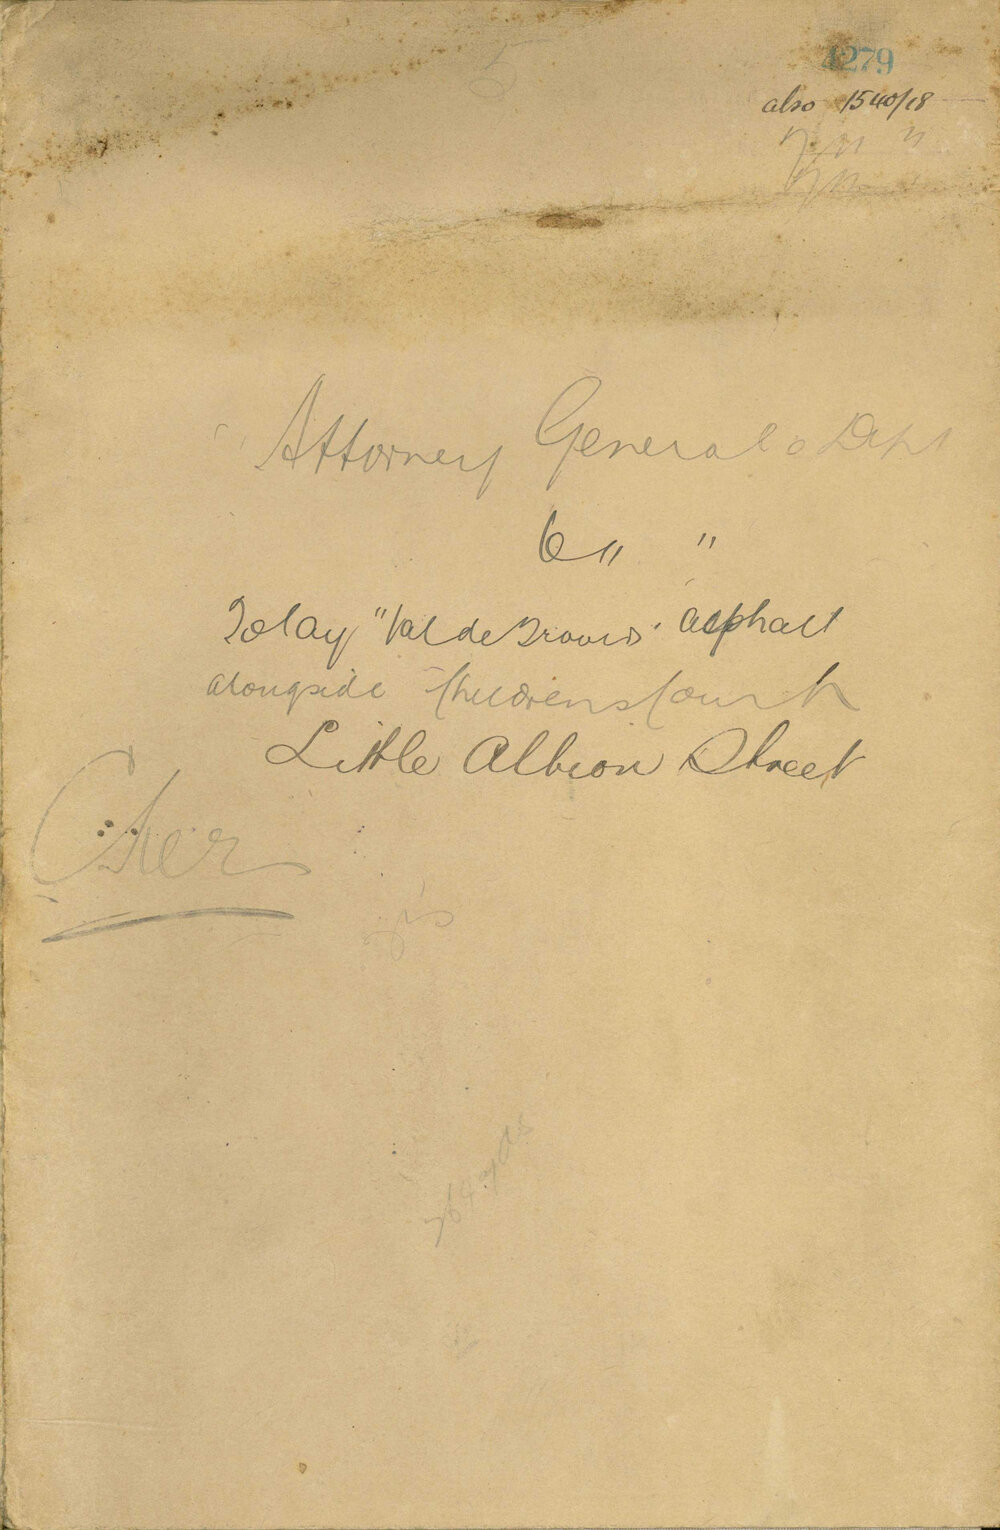 4279
also 1540/18
" " "
Attorney Generals Dept
6 " "
To lay "Val de Travers" asphalt
alongside Childrens Court
Little Albion Street